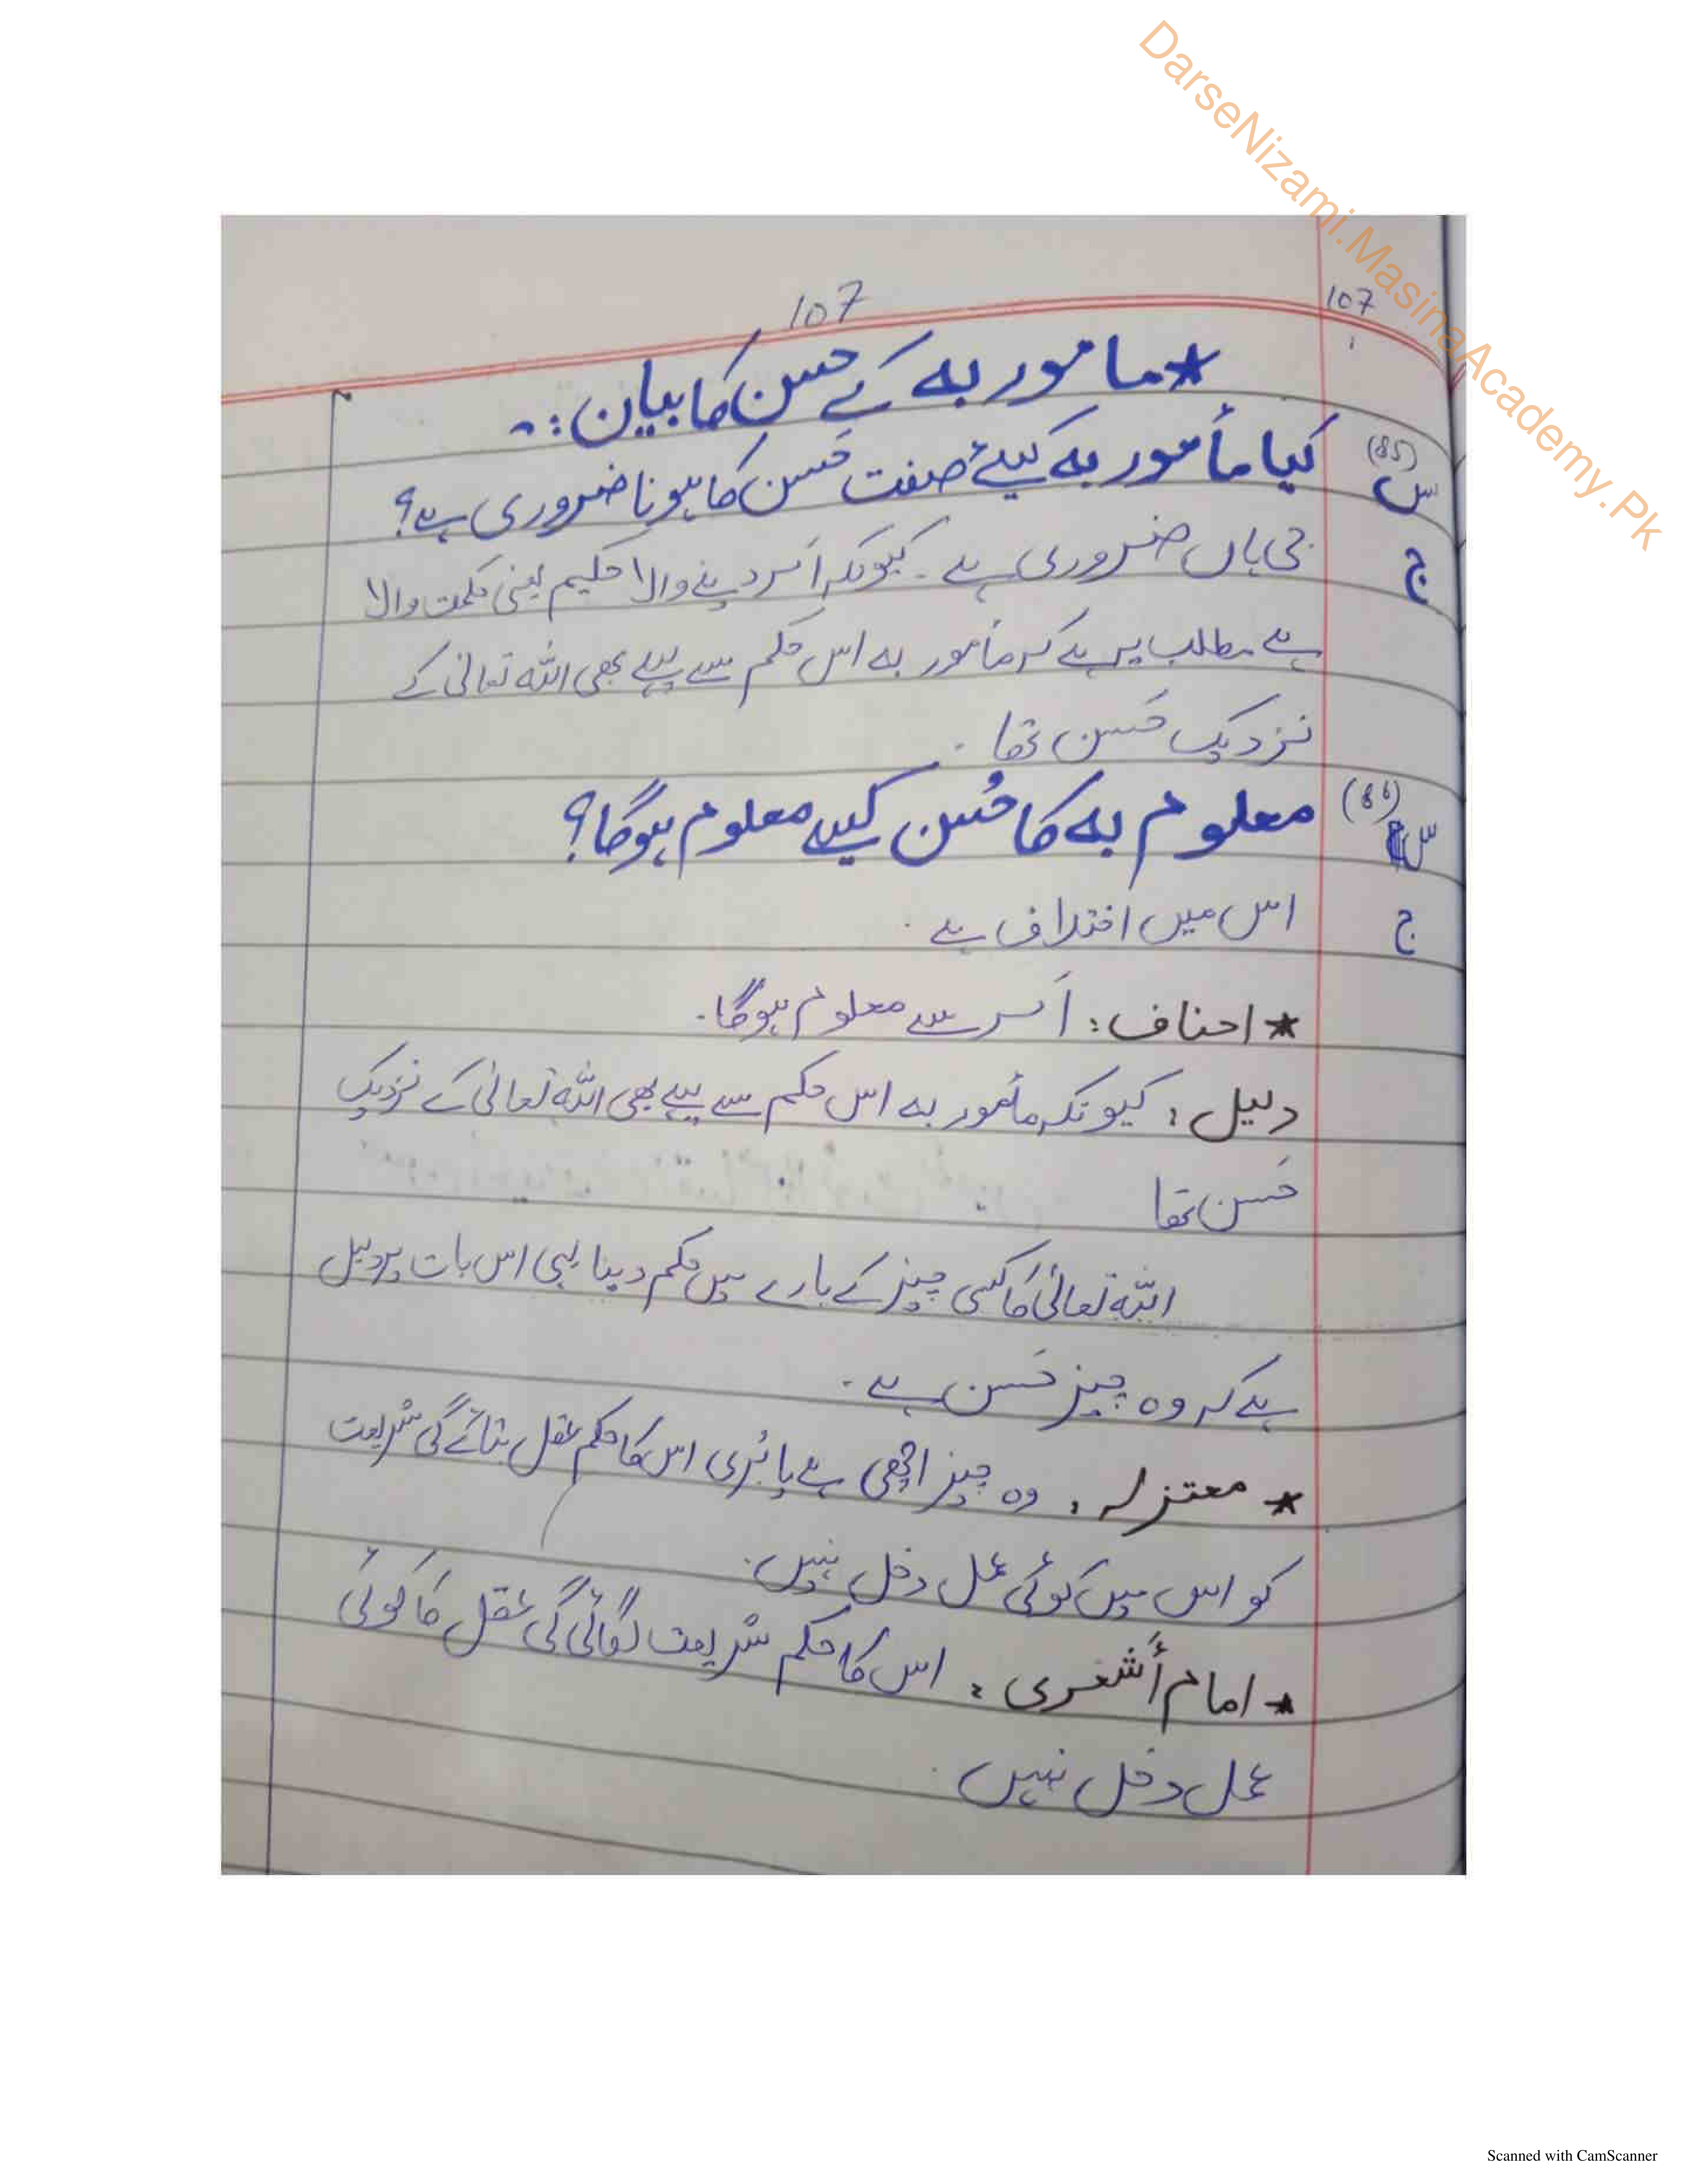 DarseNizami.MasinaAcademy.Pk
107
107
★ مامور بہ کے حسن کا بیان :۔
(85)
س کیا مأمور بہ کیلئے صفت حَسن کا ہونا ضروری ہے؟
ج جی ہاں ضروری ہے۔ کیونکہ أمر دینے والا حکیم یعنی حکمت والا
ہے مطلب یہ ہے کہ مأمور بہ اس حکم سے پہلے بھی اللہ تعالیٰ کے
نزدیک حَسن تھا۔
(86)
س معلوم بہ کا حُسن کیسے معلوم ہوگا؟
ج اس میں اختلاف ہے۔
★ احناف : أمر سے معلوم ہوگا۔
دلیل : کیونکہ مأمور بہ اس حکم سے پہلے بھی اللہ تعالیٰ کے نزدیک
حَسن تھا
اللہ تعالیٰ کا کسی چیز کے بارے میں حکم دینا ہی اس بات پر دلیل
ہے کہ وہ چیز حَسن ہے۔
★ معتزلہ : وہ چیز اچھی ہے یا بُری اس کا حکم عقل بتائے گی شریعت
کو اس میں کوئی عمل دخل نہیں۔
★ امام أشعری : اس کا حکم شریعت لگائی گی عقل کا کوئی
عمل دخل نہیں۔
Scanned with CamScanner